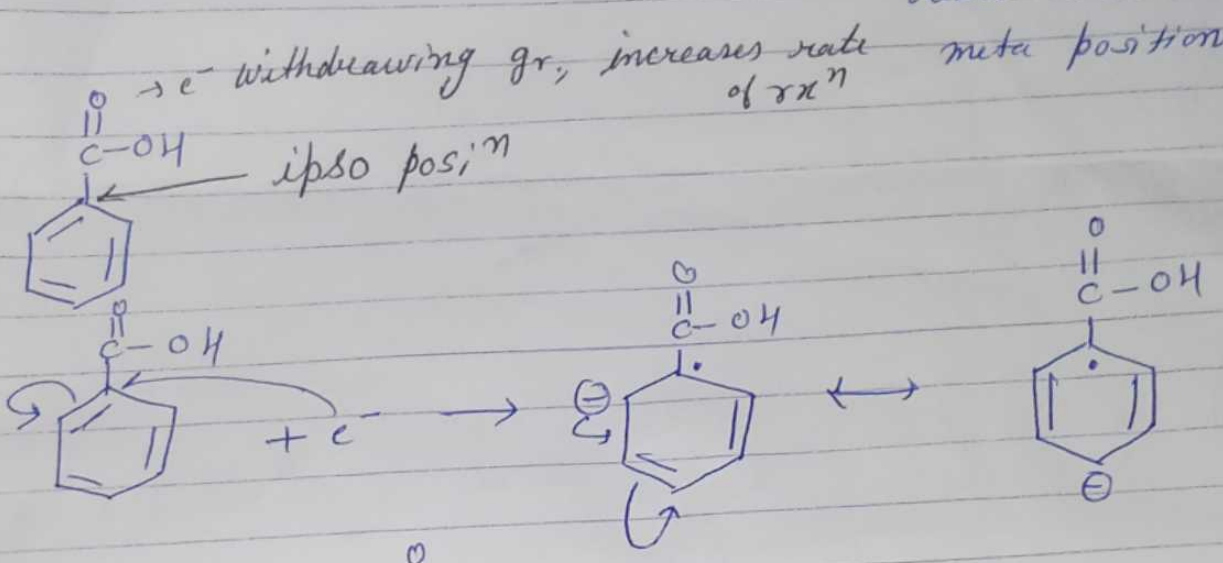 → e⁻ withdrawing gr, increases rate meta position
of rxⁿ
O
C-OH
ipso posiⁿ
O
C-OH
+ e⁻
O
C-OH
⊖
O
C-OH
⊖
O